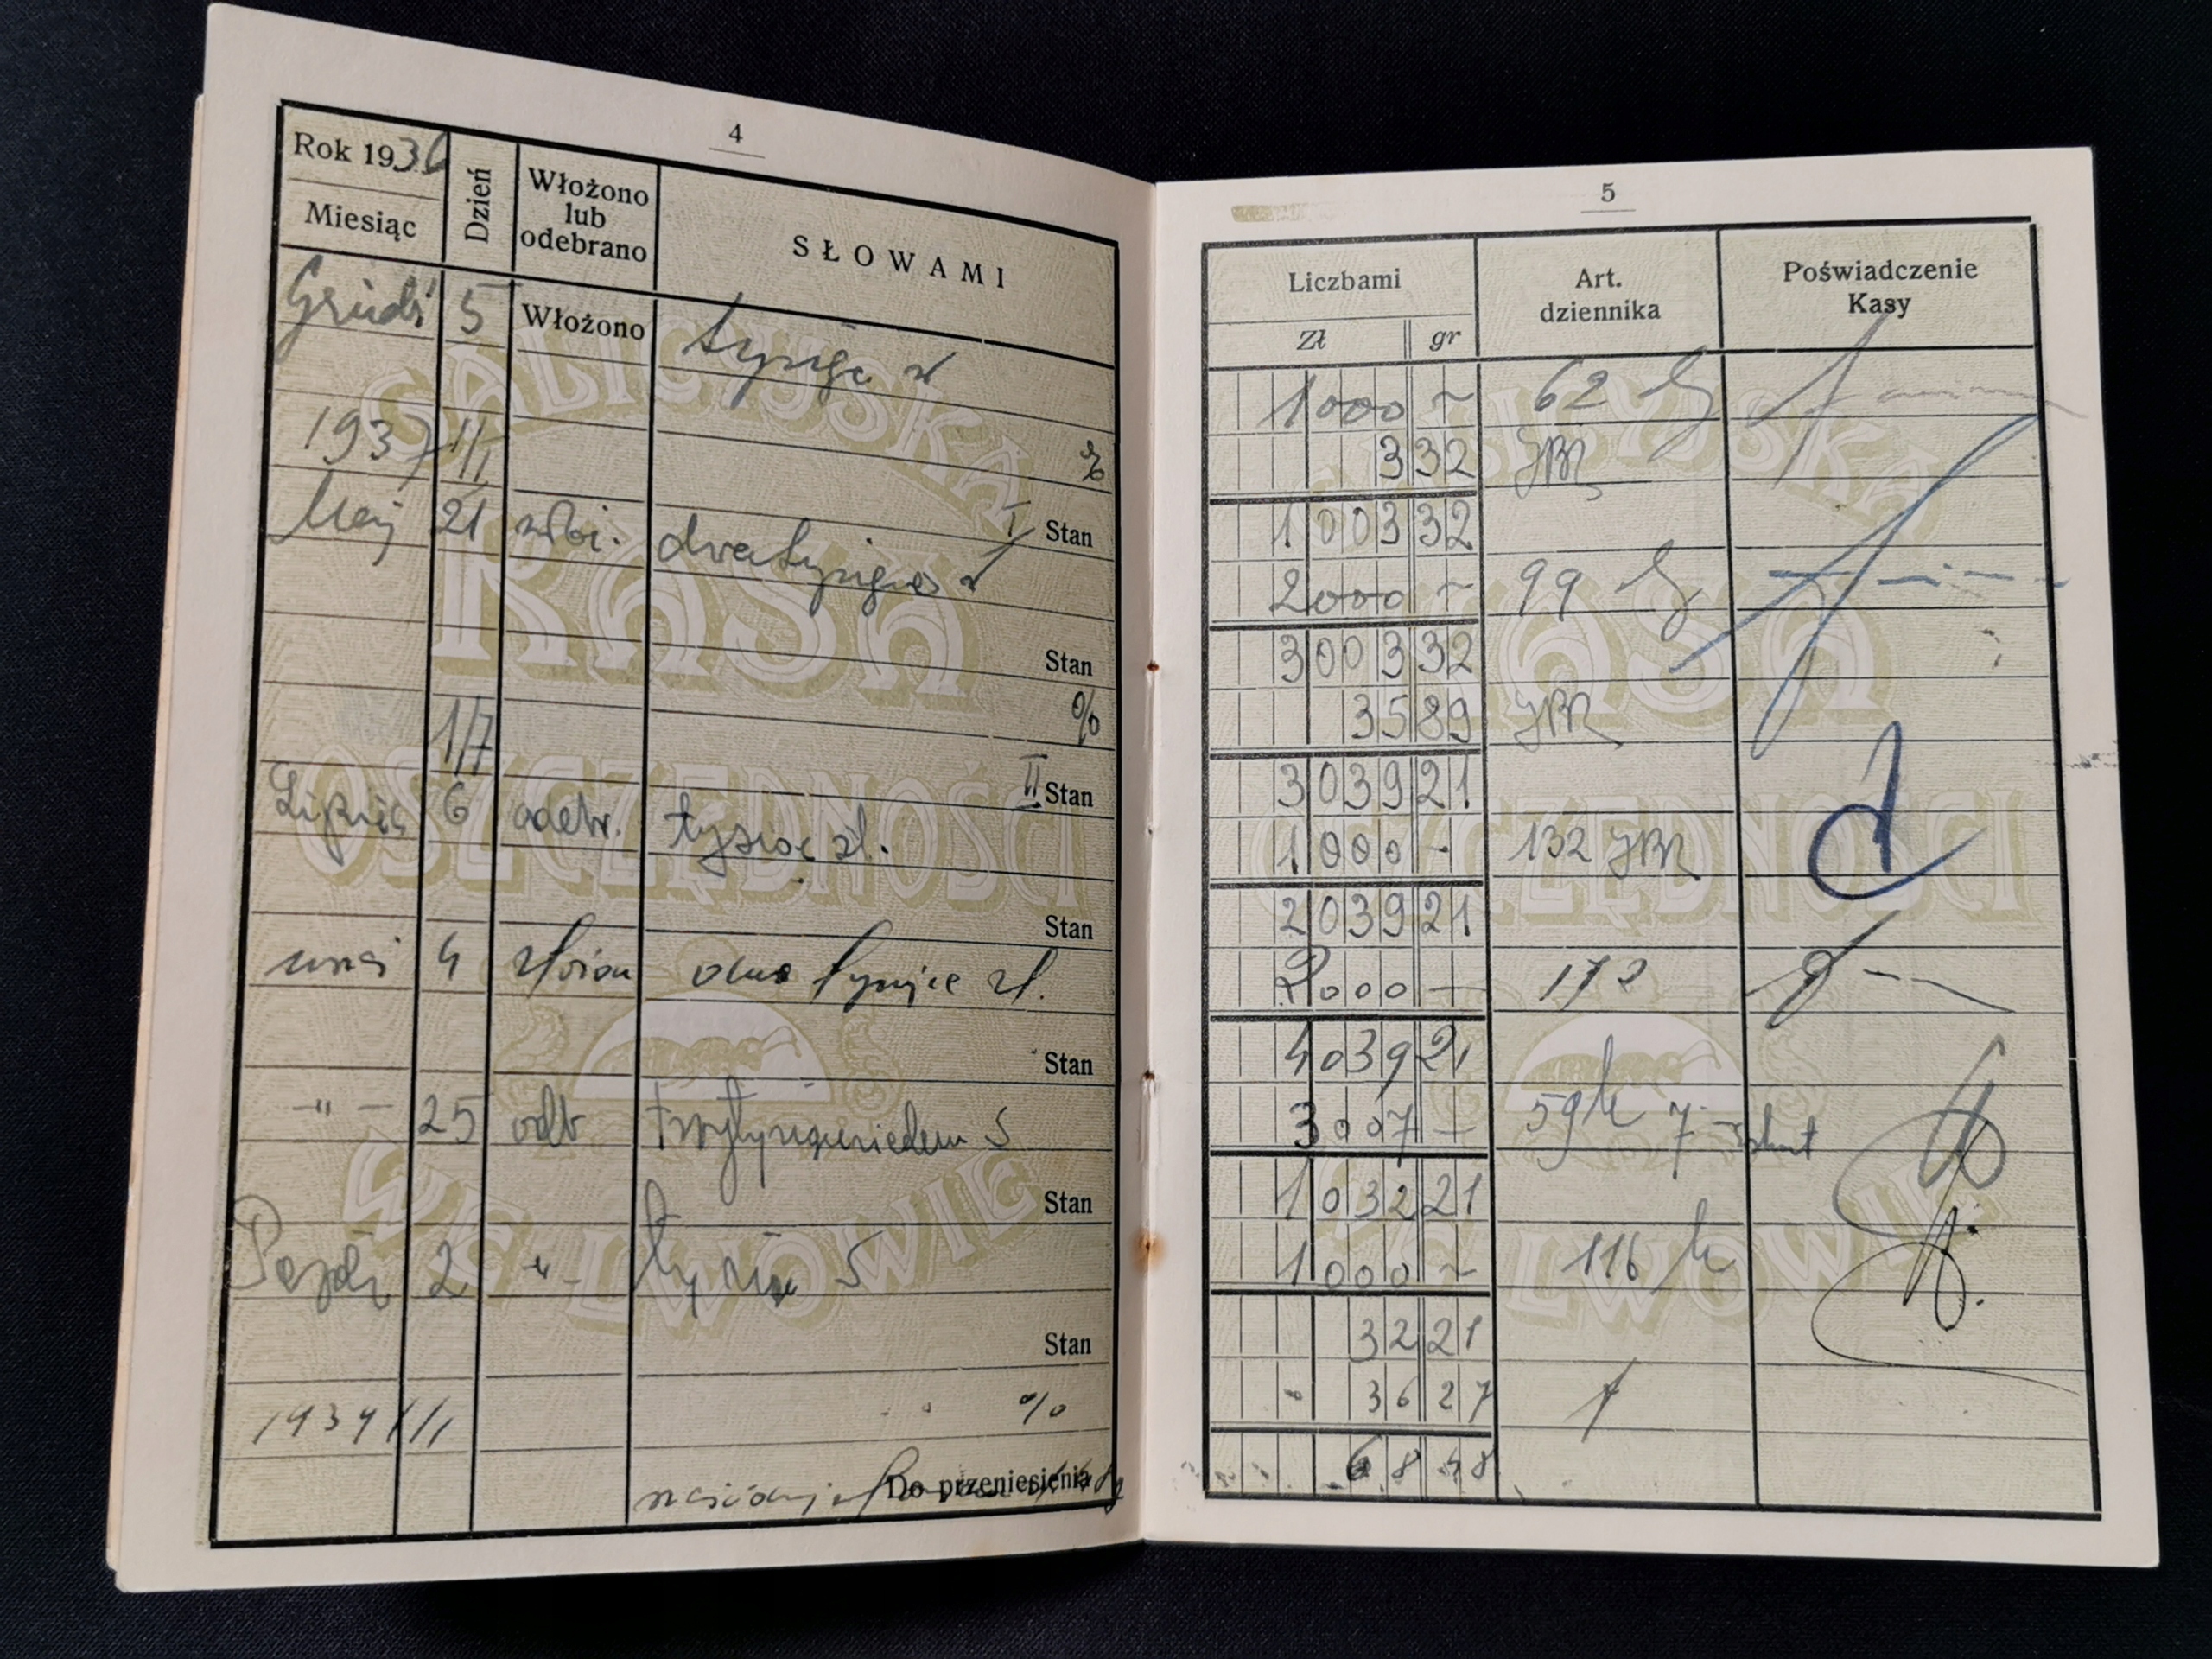 4
Rok 1936
Miesiąc
Dzień
Włożono
lub
odebrano
SŁOWAMI
Grudź 5 Włożono tysiąc zł
1937 1/I %
I Stan
Maj 21 włoż. dwatysiące zł
Stan
1/7 %
II Stan
Lipiec 6 odebr. tysiąc zł.
Stan
4 dwa tysiące zł.
Stan
-"- 25 odb trzytysiącesiedem
Stan
Paźdź 2 -"- tysiąc
Stan
193 1/I %
Do przeniesienia
5
Liczbami
Zł gr
Art.
dziennika
Poświadczenie
Kasy
1000 ~ 62
3 32
1003 32
2000 ~ 99
3003 32
35 89
3039 21
1000 - 132
2039 21
2000 — 172
4039 21
3007 — 59 7
1032 21
1000 ~ 116
32 21
36 27
68 48
GALICYJSKA
KASA
OSZCZĘDNOŚCI
WE LWOWIE